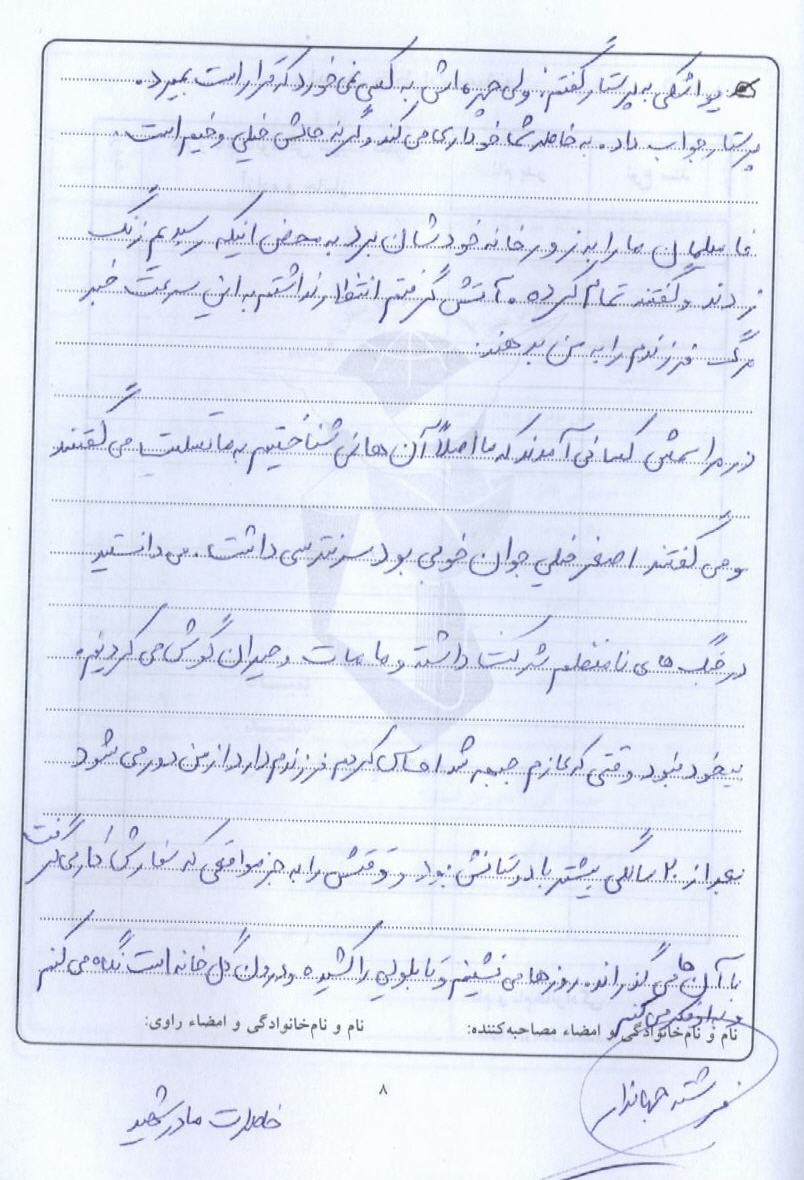 یواشکی به پرستار گفتم: ولی چهره‌اش به کسی نمی‌خورد که قرار است بمیرد.
پرستار جواب داد. به خاطر شما خودداری می‌کند وگرنه حالش خیلی وخیم است.
فامیلمان ما را به زور خانه خودشان برد به محض اینکه رسیدیم زنگ
زدند و گفتند تمام کرده. آتش گرفتم انتظار نداشتم به این سرعت خبر
مرگ فرزندم را به من بدهند.
در مراسمش کسانی آمدند که ما اصلاً آن‌ها نمی شناختیم به ما تسلیت می گفتند
و می گفتند اصغر خیلی جوان خوبی بود سر نترسی داشت. می دانستید
در جنگ های نامنظم شرکت داشته و ما مات و حیران گوش می کردیم.
بیخود نبود وقتی که عازم جبهه شد احساس کردم فرزندم دارد از من دور می شود
بعد از ۲۰ سالگی بیشتر با دوستانش بود و وقتش را به جز مواقعی که سفارش کار می گرفت
با آن ها می گذراند. روزها می نشینم و تابلویی را کشیده و درون گل خانه است نگاه می کنم
و به او فکر می کنم
نام و نام‌خانوادگی و امضاء مصاحبه‌کننده:
نام و نام‌خانوادگی و امضاء راوی:
فرشته جهاندار
۸
خاطرات مادر شهید